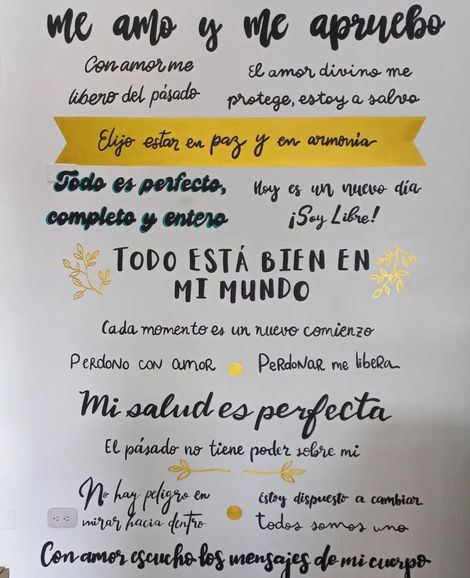 me amo y me apruebo
Con amor me
libero del pásado
El amor divino me
protege, estoy a salvo
Elijo estar en paz y en armonía
Todo es perfecto,
completo y entero
Hoy es un nuevo día
¡Soy Libre!
TODO ESTÁ BIEN EN
MI MUNDO
Cada momento es un nuevo comienzo
PERDONO CON AMOR
PERDONAR me libera
Mi salud es perfecta
El pásado no tiene poder sobre mi
No hay peligro en
mirar hacia dentro
Estoy dispuesto a cambiar
todos somos uno
Con amor escucho los mensajes de mi cuerpo